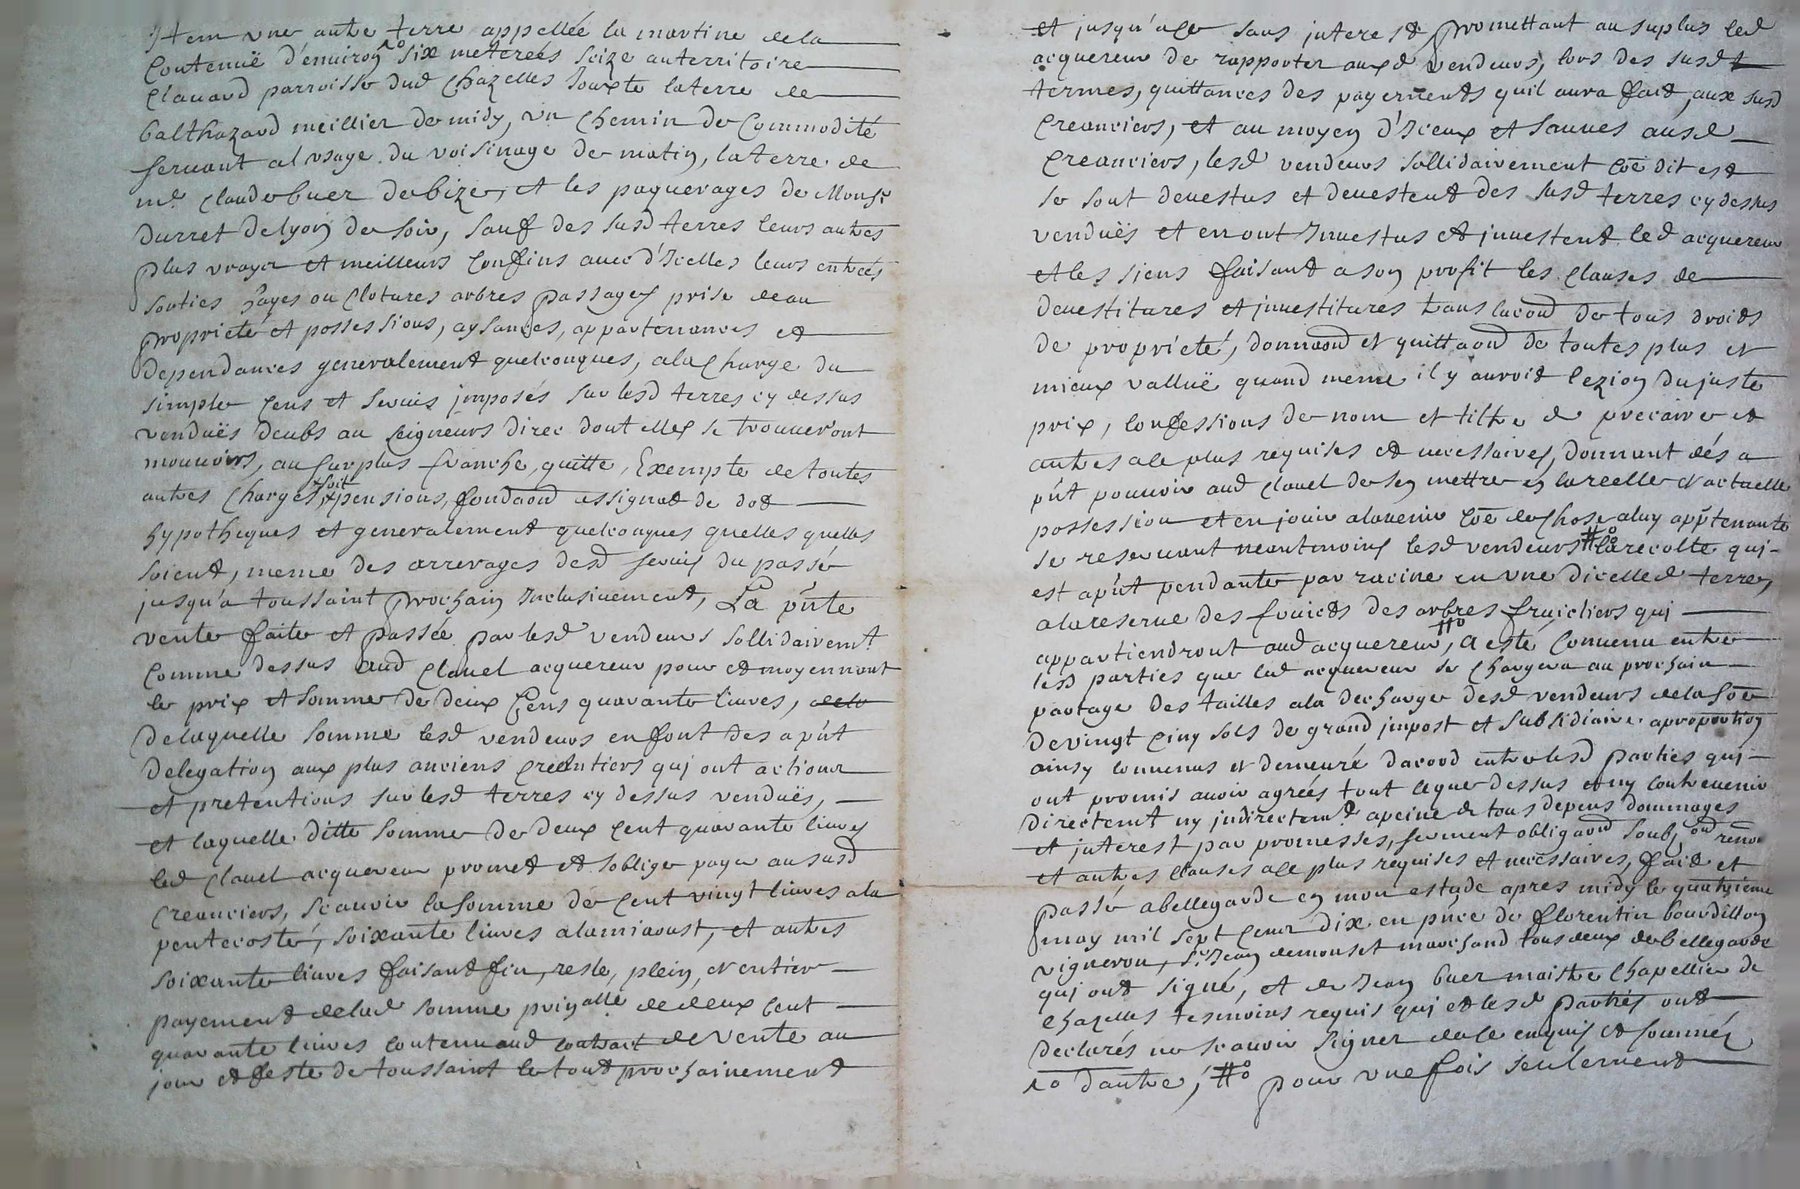 Item une autre terre appellée la martine dela
Contenuë d'enuiron 10 six meterées seize au territoire
Clauard parroisse dud Chazelles Jouxte la terre de
balthazard meillier de midy, un Chemin de Commodité
seruant al usage du voisinage de matin, la terre de
me. Claude buer de bize, et les paquerages de Monsr
Durret de lyon de soir, sauf des susd terres leurs autres
plus vrayes et meilleurs Confins auec d'Icelles leurs entrées
sorties hayes ou Clotures arbres passages prise deau
proprieté et possessions, aysances, appartenances et
dependances generalement quelconques, ala Charge du
simple Cens et seruis jmposés sur lesd terres cy dessus
venduës deubs au seigneurs direc dont elles se trouueront
mouuoirs, au surplus franche, quitte, Exempte de toutes
autres Charges, soit pensions, fondaon assignat de dot
hypotheques et generalement quelconques quelles quelles
soient, meme des arrerages desd seruis du passé
jusqu'a toussaint prochain Inclusiuement, La pnte
vente faite et passée par lesd vendeurs sollidairemt
Comme dessus aud Clauel acquereur pour et moyennant
le prix et somme de deux Cens quarante liures, dela
De laquelle somme lesd vendeurs en font des apnt
delegation aux plus anciens Creantiers qui ont actions
et pretentions sur lesd terres cy dessus venduës,
et laquelle ditte somme de deux Cent quarante liures
led Clauel acquereur promet et soblige payer au susd
Creanciers, scauoir la somme de Cent vingt liures ala
pentecoste, soixante liures alamiaoust, et autres
soixante liures faisant fin, reste, plein, et entier
payement delad somme prinalle de deux Cent
quarante liures Contenu aud Contract de vente au
jour et feste de toussaint le tout prochainement
et jusqu'ale sans jnterest promettant au suplus led
acquereur de rapporter auxd vendeurs, lors des susd
termes, quittances des payements quil aura fait, aux susd
Creanciers, et au moyen d'Iceux et sauues ausd
Creanciers, lesd vendeurs sollidairement Coe dit est
se sont deuestus et deuestent des susd terres cy dessus
venduës et en ont Inuestus et jnuestent led acquereur
et les siens faisant a son profit les Clauses de
deuestitures et jnuestitures translaond de tous droits
de proprieté, donnaond et quittaond de toutes plus et
mieux valluë quand meme il y auroit lezion du juste
prix, Confessions de nom et tiltre de precaire et
autres ale plus requises et necessaires, donnant dés a
pnt pouuoir aud Clauel de sen mettre en la reelle et actuelle
possession et en jouir alauenir Coe de Chose aluy appntenante
se reseruant neantmoins lesd vendeurs #o la recolte qui
est apnt pendante par racine en une dicelled terres,
ala reserue des fruicts des arbres fruictiers qui
appartiendront aud acquereur, #o a esté Conuenu entre
lesd parties que led acquereur se Chargera au prochain
partage des tailles ala decharge desd vendeurs dela soe
De vingt Cinq sols de grand jmpost et subsidiaire aproportion
ainsy Conuenus et demeuré dacord entre lesd parties qui
ont promis auoir agreés tout ceque dessus et ny Contreuenir
directemt ny jndirectemt apeine de tous depens dommages
et jnterest par promesses, serment obligaond soub, ond renon
et autres Clauses ale plus requises et necessaires, fait et
passé abellegarde en mon estude apres midy le quatrieme
may mil sept Cent dix en pnce de florentin bourdillon
vigneron, sr Jean demouset marchand tous deux de bellegarde
qui ont signé, et de Jean buer maistre Chapellier de
Chazelles tesmoins requis qui et lesd parties ont
declarés ne scauoir signer dele enquis et sommés
10 dautre, #o pour une fois seulement